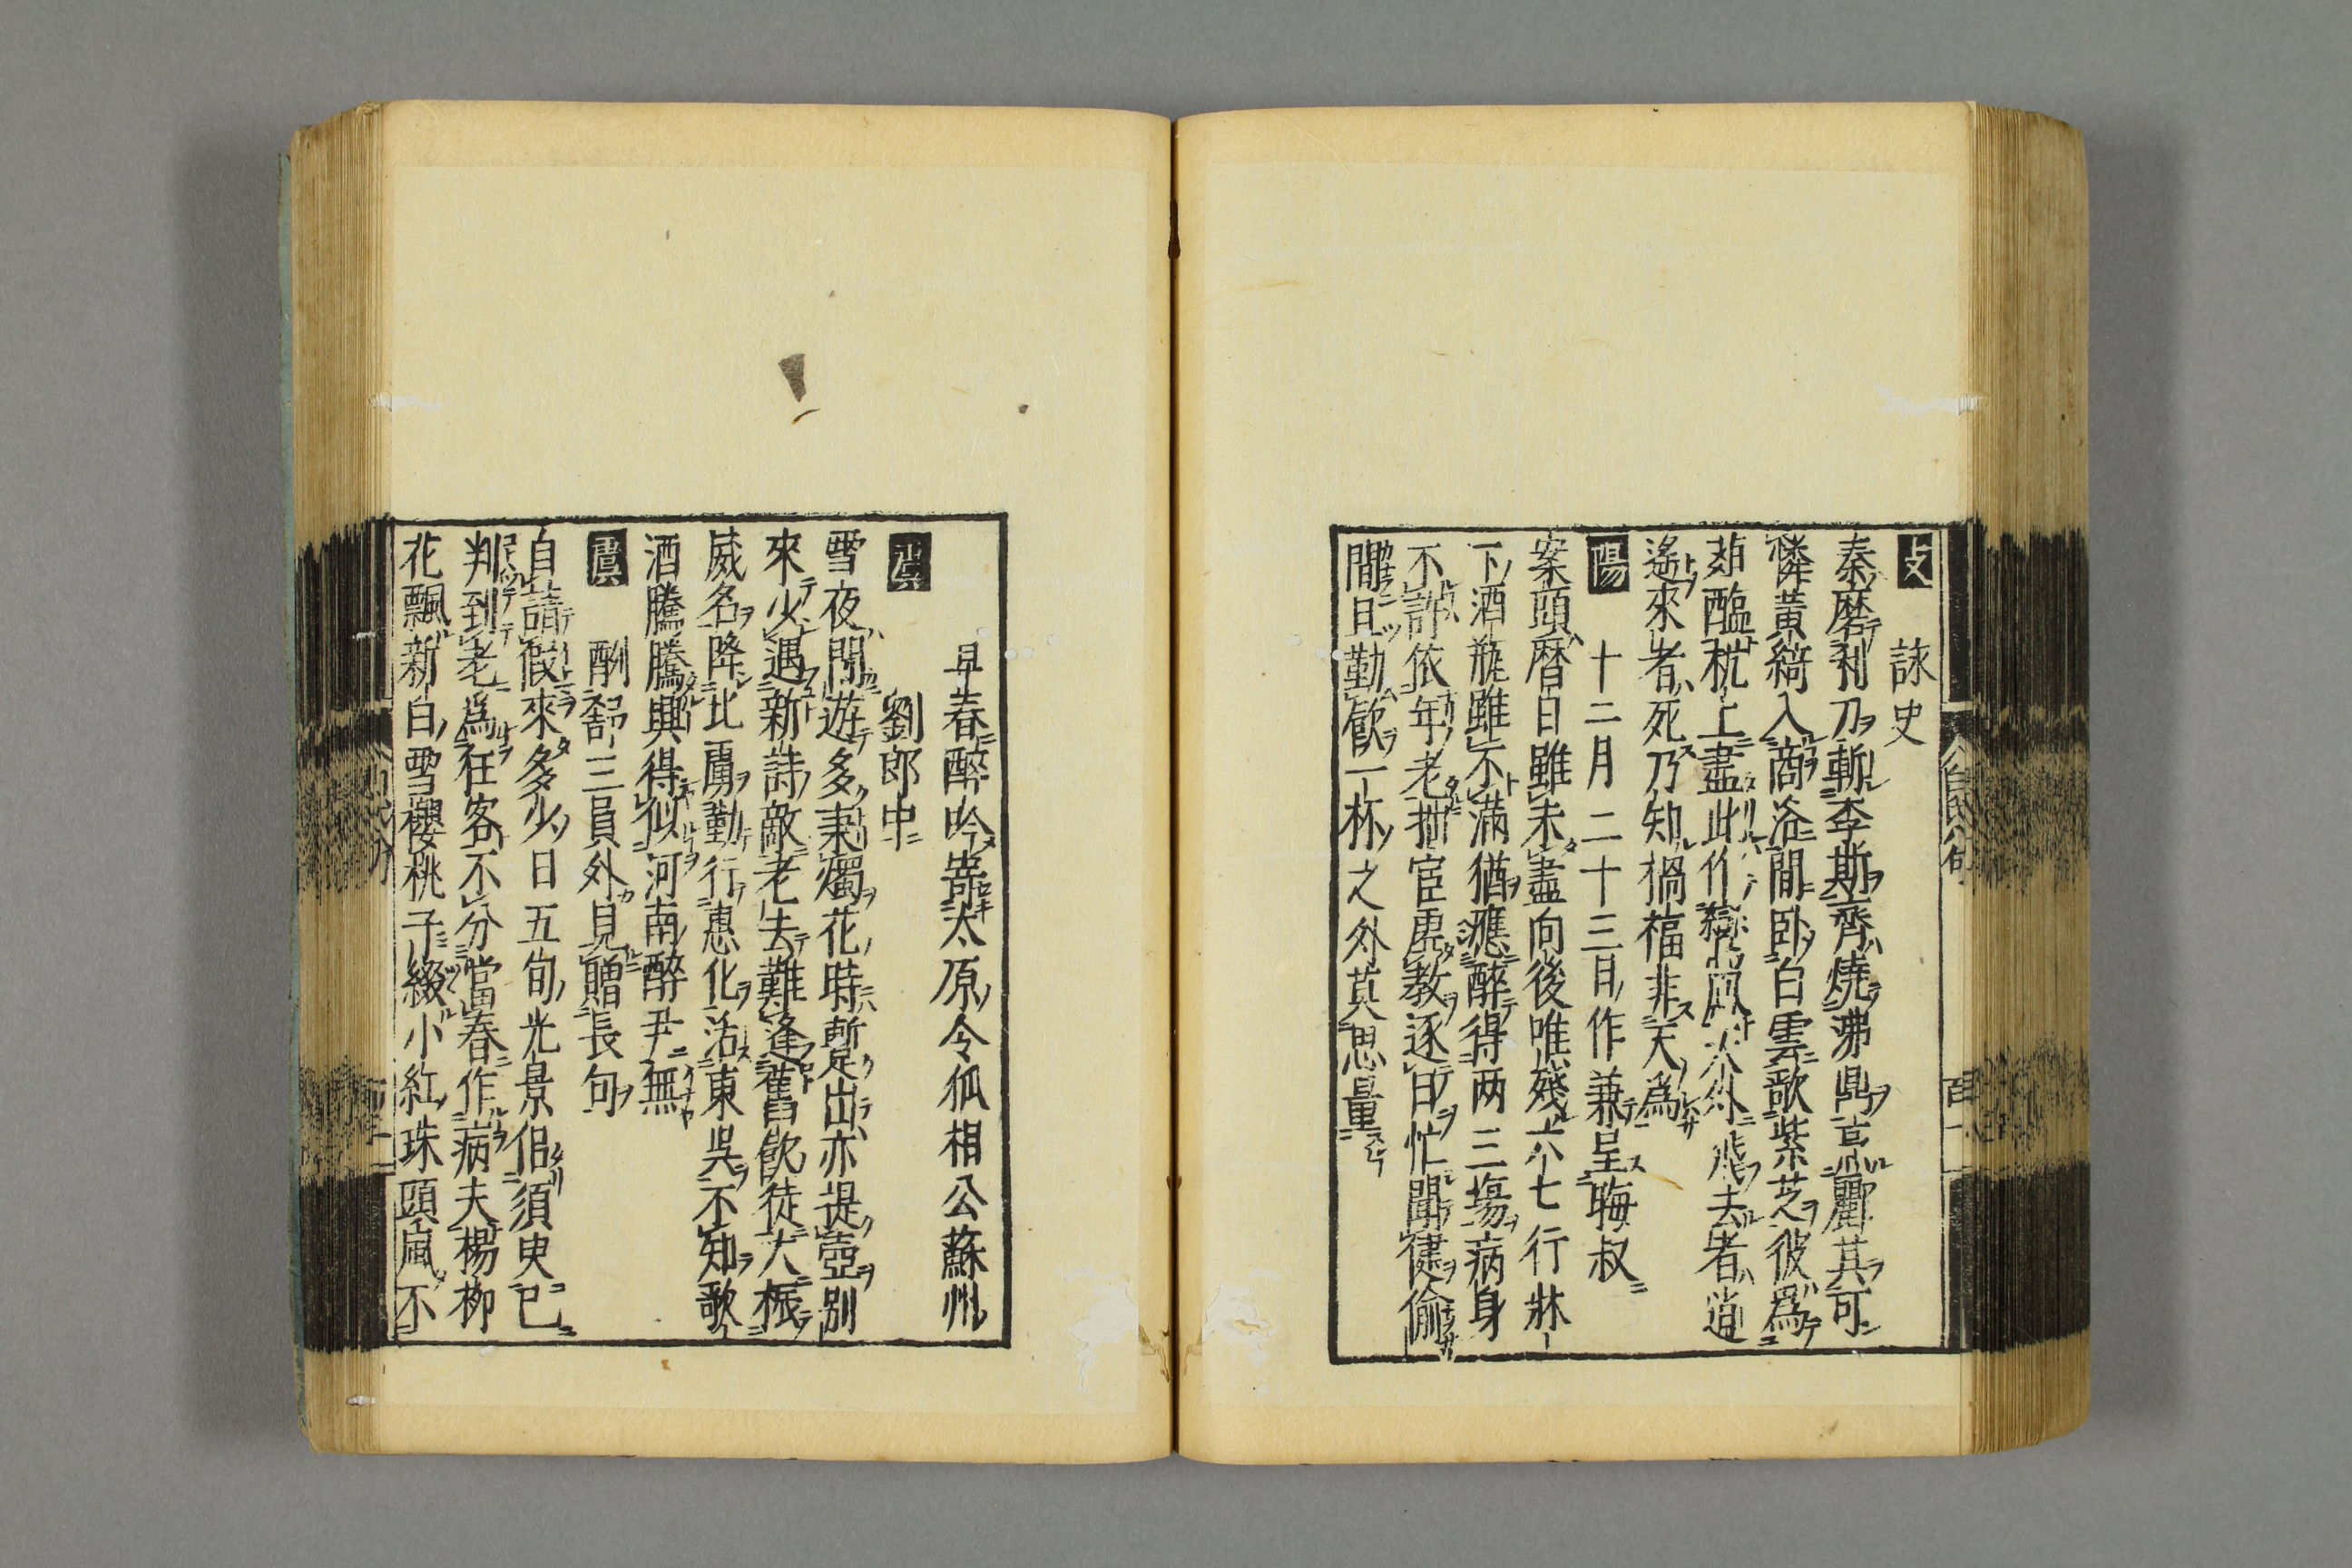 支
詠史
秦磨利刀斬李斯齊燒沸鼎烹酈其可
憐黃綺入商洛閒卧白雲歌紫芝彼爲
葅醢机上盡此作鸞凰天外飛去者逍
遙來者死乃知禍福非天爲
陽
十二月二十三日作兼呈晦叔
案頭曆日雖未盡向後唯殘六七行牀
下酒瓶雖不滿猶應醉得两三場病身
不許依年老拙宦虛教逐日忙聞健偷
閒且勤飮一杯之外莫思量
白氏 句
早春醉吟寄太原令狐相公蘇州
劉郎中
雪夜閒遊多秉燭花時蹔出亦提壺別
來少遇新詩敵老去難逢舊飮徒大振
威名降北虜勤行惠化活東吳不知歌
酒騰騰興得似河南醉尹無
虞
酬舒三員外見贈長句
自請假來多少日五旬光景似須臾已
判到老爲狂客不分當春作病夫楊柳
花飄新白雪櫻桃子綴小紅珠頭風不